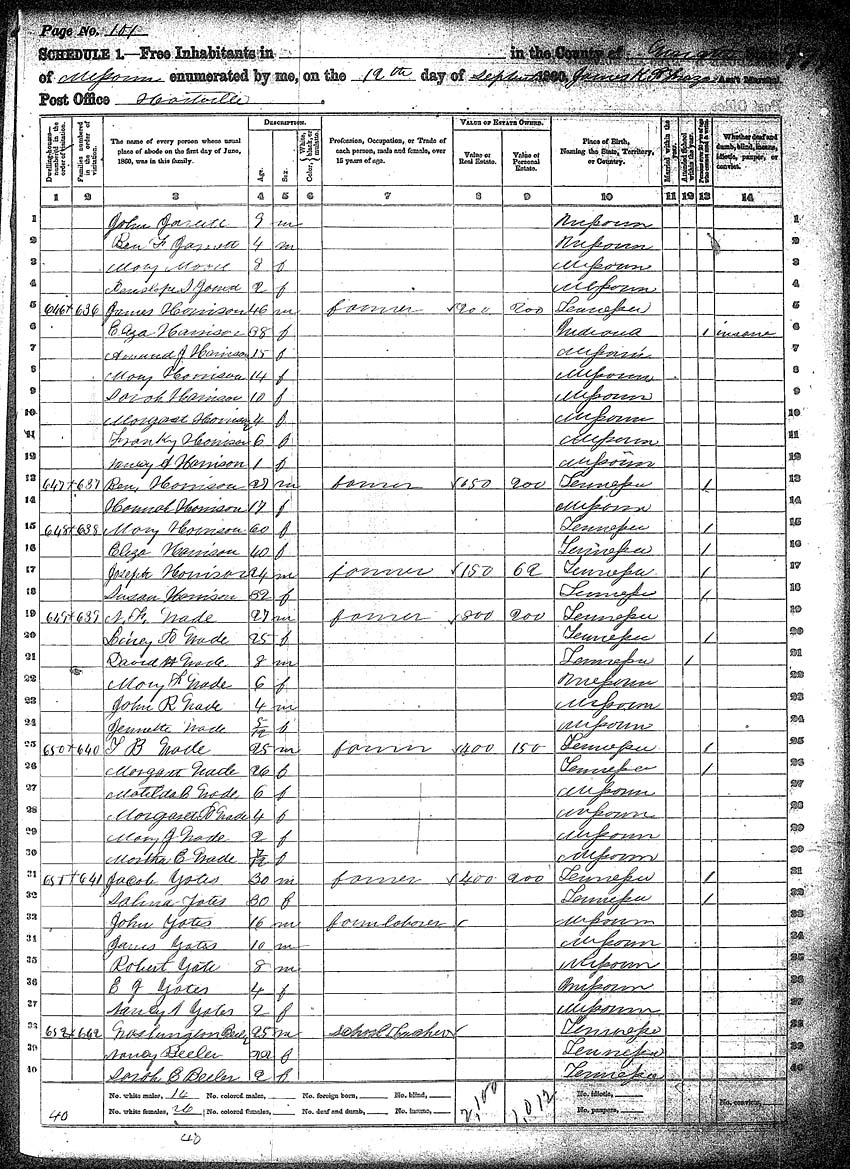 Page No. 101
SCHEDULE 1.—Free Inhabitants in in the County of
of Missouri enumerated by me, on the 12th day of Septem 1860. James K. Ass't Marshal.
Post Office Hartville
DESCRIPTION. VALUE OF ESTATE OWNED.
Dwelling-houses—numbered in the order of visitation. Families numbered in the order of visitation. The name of every person whose usual place of abode on the first day of June, 1860, was in this family. Age. Sex. Color, White, black, or mulatto. Profession, Occupation, or Trade of each person, male and female, over 15 years of age. Value of Real Estate. Value of Personal Estate. Place of Birth, Naming the State, Territory, or Country. Married within the year. Attended School within the year. Whether deaf and dumb, blind, insane, idiotic, pauper, or convict.
1 2 3 4 5 6 7 8 9 10 11 12 13 14
1 John Jarrett 9 m Missouri 1
2 Ben F Jarrett 4 m Missouri 2
3 Mary 8 f Missouri 3
4 2 f Missouri 4
5 646 636 James Harrison 46 m farmer 200 200 Tennessee 5
6 Eliza Harrison 38 f Indiana 1 insane 6
7 Amand J Harrison 15 f Missouri 7
8 Mary Harrison 14 f Missouri 8
9 Sarah Harrison 10 f Missouri 9
10 Margaret Harrison 4 f Missouri 10
11 Franky Harrison 6 f Missouri 11
12 Nancy A Harrison 1 f Missouri 12
13 647 637 Ben Harrison 27 m farmer 650 200 Tennessee 1 13
14 Hannah Harrison 17 f Missouri 14
15 648 638 Mary Harrison 60 f Tennessee 1 15
16 Eliza Harrison 40 f Tennessee 1 16
17 Joseph Harrison 24 m farmer 150 62 Tennessee 1 17
18 Susan Harrison 32 f Tennessee 1 18
19 649 639 Wade 27 m farmer 800 200 Tennessee 19
20 Wade 25 f Tennessee 1 20
21 David H Wade 8 m Tennessee 1 21
22 Mary Wade 6 f Missouri 22
23 John R Wade 4 m Missouri 23
24 Jennette Wade 5/12 f Missouri 24
25 650 640 T B Wade 25 m farmer 400 150 Tennessee 1 25
26 Margaret Wade 26 f Tennessee 1 26
27 Matilda C Wade 6 f Missouri 27
28 Margaret Wade 4 f Missouri 28
29 Mary J Wade 2 f Missouri 29
30 Martha E Wade 7/12 f Missouri 30
31 651 641 Jacob Yates 30 m farmer 400 200 Tennessee 1 31
32 Salina Yates 30 f Tennessee 1 32
33 John Yates 16 m farm laborer Missouri 33
34 James Yates 10 m Missouri 34
35 Robert Yate 8 m Missouri 35
36 E J Yates 4 f Missouri 36
37 Nancy A Yates 2 f Missouri 37
38 652 642 Washington Beeler 25 m School Teacher Tennessee 38
39 Nancy Beeler 22 f Tennessee 39
40 Sarah E Beeler 2 f Tennessee 40
No. white males, 14 No. colored males, No. foreign born, No. blind, 2,100 1,012 No. idiotic,
40 No. white females, 26 No. colored females, No. deaf and dumb, No. insane, No. paupers, No. convicts,
40